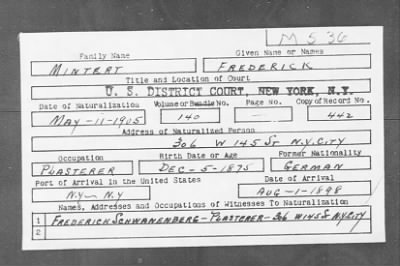 M 536
Family Name Given Name or Names
MINTRAT FREDERICK
Title and Location of Court
U. S. DISTRICT COURT, NEW YORK, N.Y.
Date of Naturalization Volume or Bundle No. Page No. Copy of Record No.
MAY-11-1905 140 — 442
Address of Naturalized Person
306 W 145 St N.Y.CITY
Occupation Birth Date or Age Former Nationality
PLASTERER DEC-5-1875 GERMAN
Port of Arrival in the United States Date of Arrival
N.Y— N.Y AUG-1-1898
Names, Addresses and Occupations of Witnesses To Naturalization
1 FREDERICH SCHWANENBERG - PLASTERER - 306 W 145 St N.Y.CITY
2